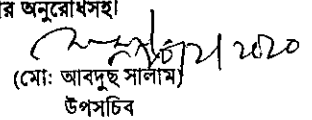 র অনুরোধসহ।
(মোঃ আবদুছ সালাম)
উপসচিব